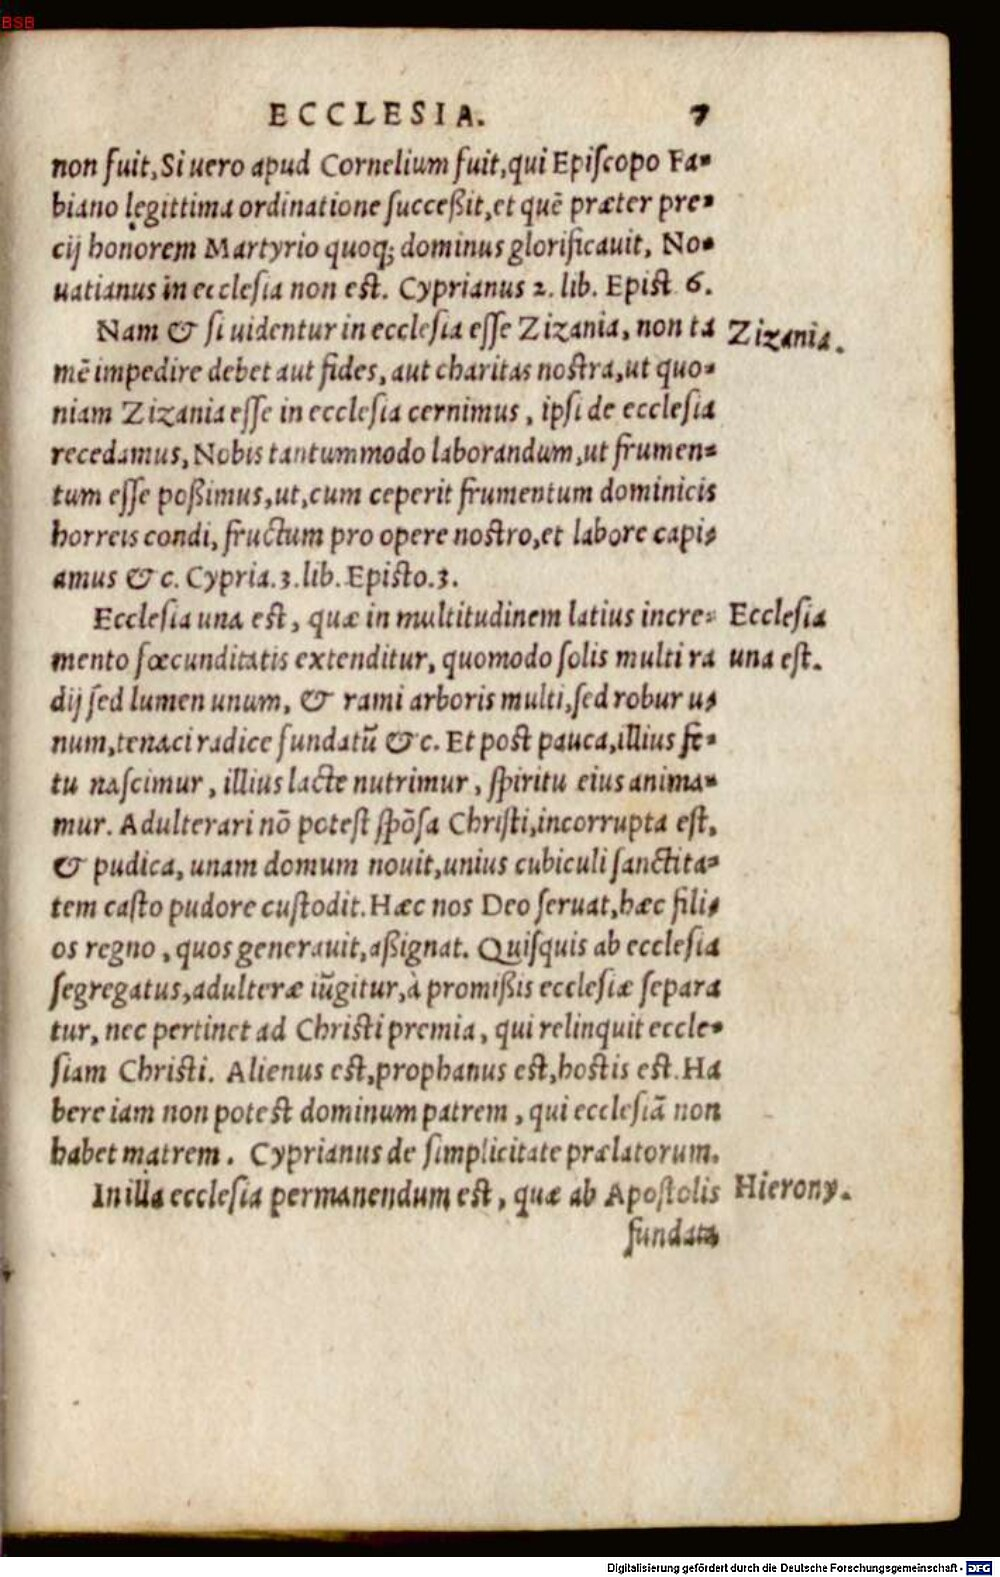 BSB
ECCLESIA. 7
non fuit, Si uero apud Cornelium fuit, qui Episcopo Fa-
biano legittima ordinatione succeßit, et quẽ præter pre-
cij honorem Martyrio quoq; dominus glorificauit, No-
uatianus in ecclesia non est. Cyprianus 2. lib. Epist. 6.
Nam & si uidentur in ecclesia esse Zizania, non ta
mẽ impedire debet aut fides, aut charitas nostra, ut quo-
niam Zizania esse in ecclesia cernimus, ipsi de ecclesia
recedamus, Nobis tantummodo laborandum, ut frumen-
tum esse poßimus, ut, cum ceperit frumentum dominicis
horreis condi, fructum pro opere nostro, et labore capi-
amus &c. Cypria. 3. lib. Episto. 3.
Zizania.
Ecclesia una est, quæ in multitudinem latius incre-
mento fœcunditatis extenditur, quomodo solis multi ra
dij sed lumen unum, & rami arboris multi, sed robur u-
num, tenaci radice fundatũ &c. Et post pauca, illius fe-
tu nascimur, illius lacte nutrimur, spiritu eius anima-
mur. Adulterari nõ potest spõsa Christi, incorrupta est,
& pudica, unam domum nouit, unius cubiculi sanctita-
tem casto pudore custodit. Hæc nos Deo seruat, hæc fili-
os regno, quos generauit, aßignat. Quisquis ab ecclesia
segregatus, adulteræ iũgitur, à promißis ecclesiæ separa
tur, nec pertinet ad Christi premia, qui relinquit eccle-
siam Christi. Alienus est, prophanus est, hostis est. Ha
bere iam non potest dominum patrem, qui ecclesiã non
habet matrem. Cyprianus de simplicitate prælatorum.
Ecclesia
una est.
In illa ecclesia permanendum est, quæ ab Apostolis
Hierony.
fundata
Digitalisierung gefördert durch die Deutsche Forschungsgemeinschaft - DFG